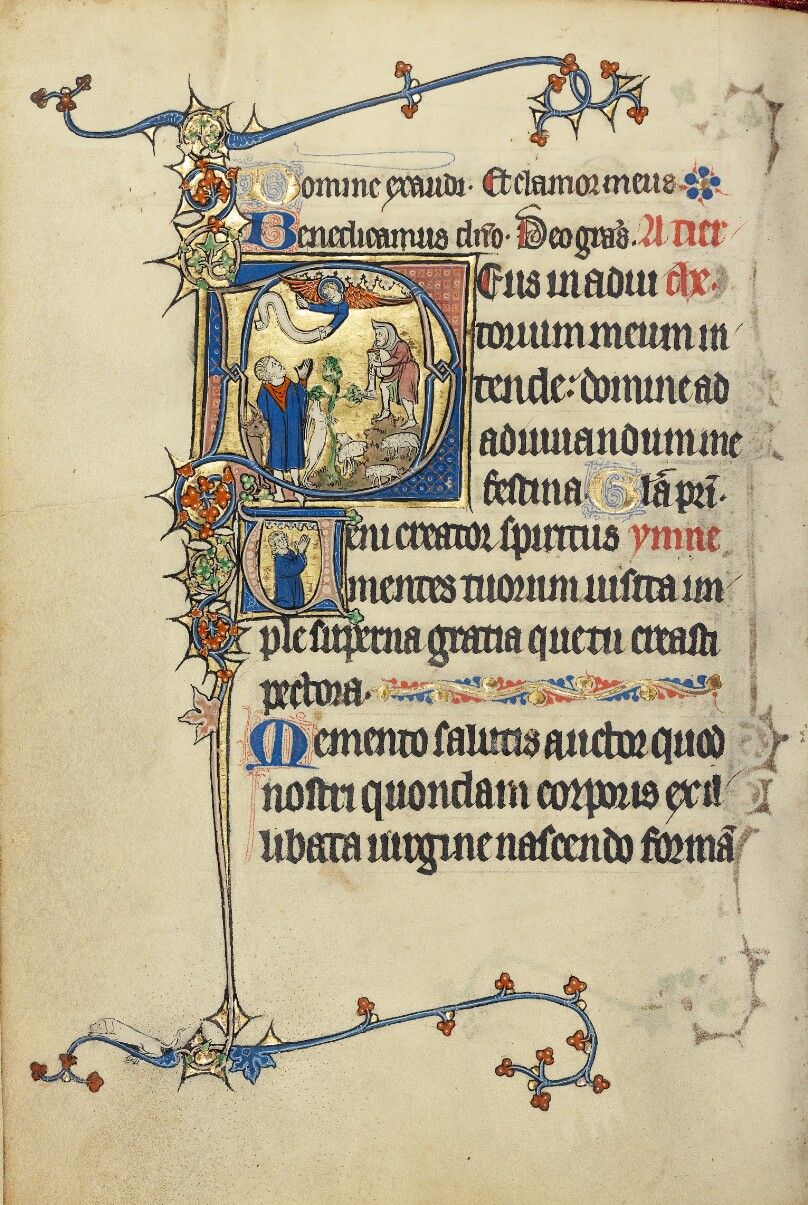 Domine exaudi. Et clamor meus
Benedicamus dño. Deo gras̃. A tier
Deus in adiu che.
torium meum in
tende: domine ad
adiuuandum me
festina. Glã pri̾.
Ueni creator spiritus ymne
mentes tuorum uisita im
ple superna gratia que tu creasti
pectora.
Memento salutis auctor quod
nostri quondam corporis exil
libata uirgine nascendo formã